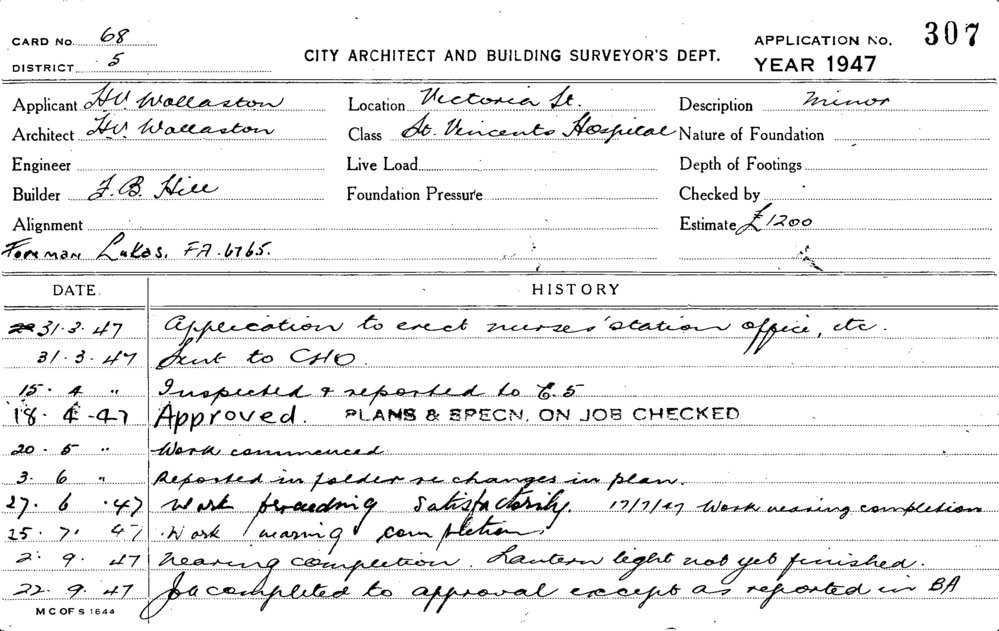 CARD No. 68
DISTRICT 5
CITY ARCHITECT AND BUILDING SURVEYOR'S DEPT.
APPLICATION No. 307
YEAR 1947
Applicant H V Wollaston Location Victoria St. Description Minor
Architect H V Wollaston Class St. Vincents Hospital Nature of Foundation
Engineer Live Load Depth of Footings
Builder F. B. Hill Foundation Pressure Checked by
Alignment Estimate £1200
Foreman Lukas. FA.6765.
DATE HISTORY
31.3.47 Application to erect nurses' station office, etc.
31.3.47 Sent to CHO
15.4 " Inspected & reported to E.5
18.4-47 Approved. PLANS & SPECN. ON JOB CHECKED
20.5 " Work commenced
3.6 " Reported in folder re changes in plan.
27.6.47 Work satisfactorily 17/7/47 Work nearing completion
25.7.47 Work nearing completion
2.9.47 Nearing completion. Lantern light not yet finished.
22.9.47 Job completed to approval except as reported in BA
M C OF S 1644